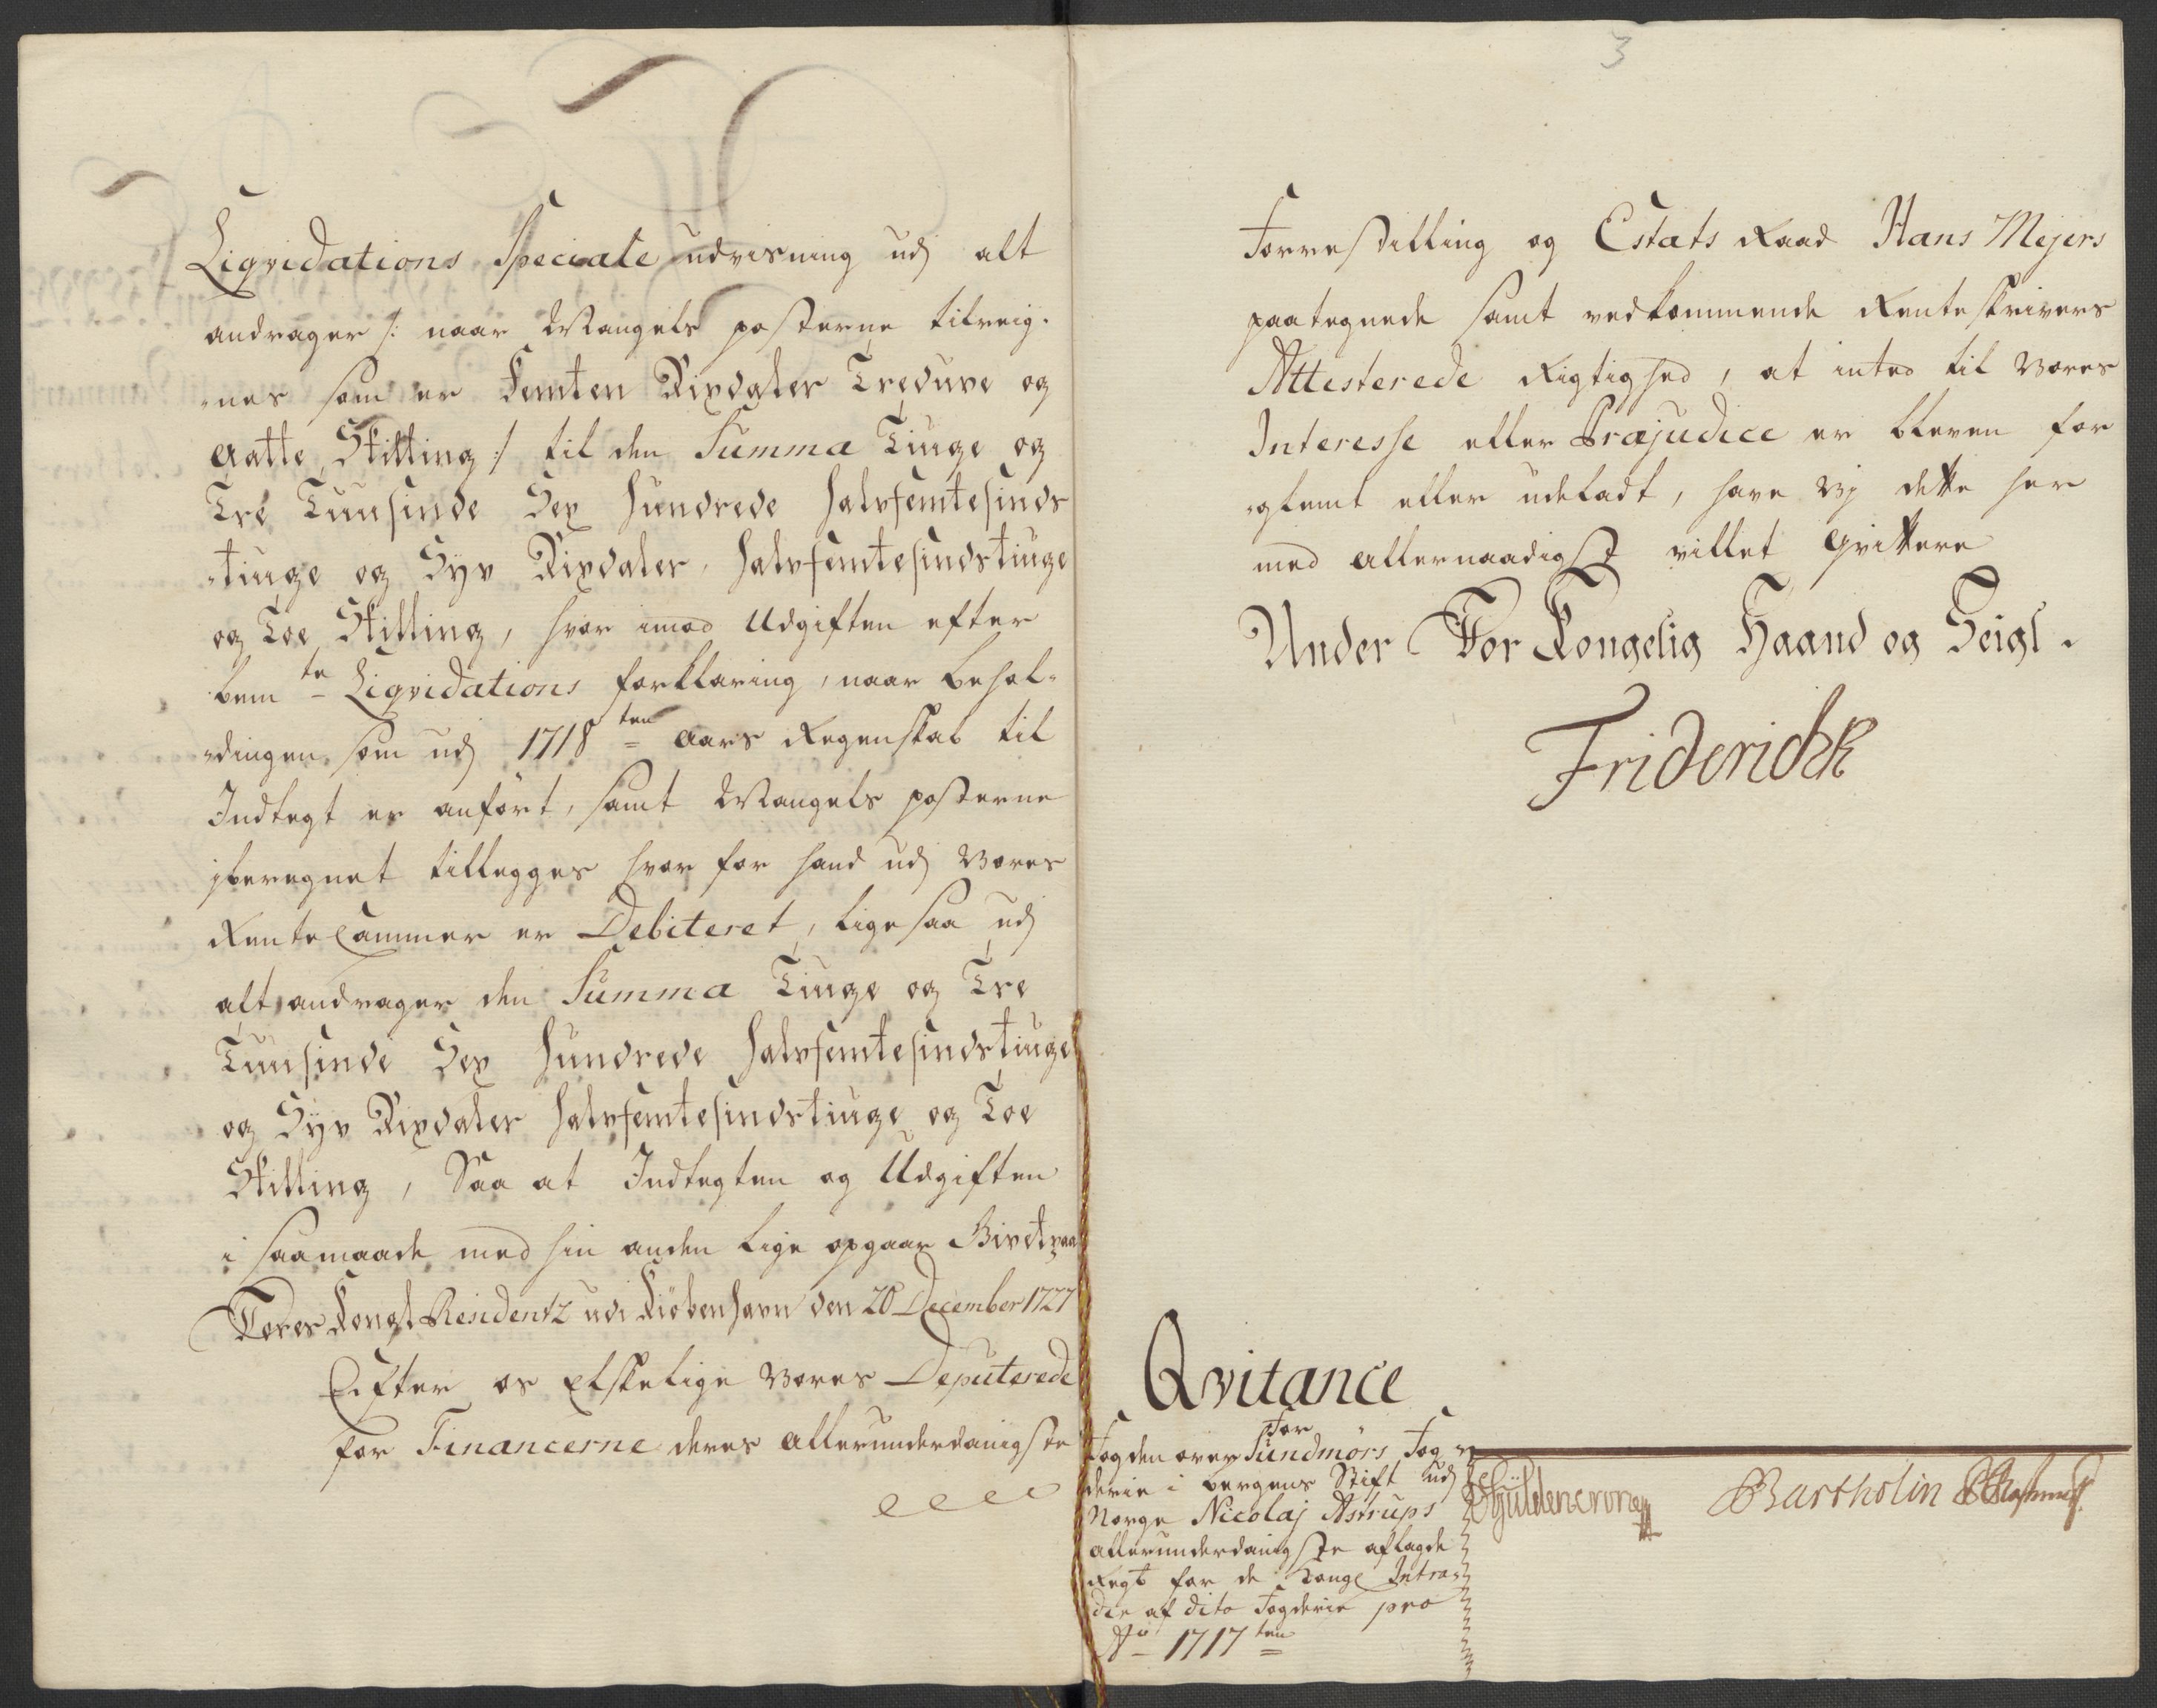 Liqvidations Speciale udvisning udj alt
andrager /: naar Mangels posterne tilreig-
-nes som er Femten Rixdaler Treduve og
Aatte Skilling :/ til den Summa Tiuge og
Tre Tuusinde Sex hundrede halvfemtesinds
-tiuge og Syv Rixdaler, halvfemtesindstiuge
og Toe Skilling, hvor imod Udgiften efter
bemte Liqvidations forklaring, naar behol-
-dingen som udj 1718ten Aars Regenskab til
Indtegt er anført, samt Mangels posterne
jberegnet tillegges hvor for hand udj Vores
RenteCammer er Debiteret, lige saa udj
alt andrager den Summa Tiuge og Tre
Tuusinde Sex hundrede halvfemtesindstiuge
og Syv Rixdaler halvfemtesindstiuge og Toe
Skilling, Saa at Indtegten og Udgiften
i saamaade med hin anden lige opgaar Givet paa
Vores Kongl Residentz udi Kiøbenhavn den 20 December 1727
Efter os elskelige Vores Deputerede
for Financerne deres allerunderdanigste
3
Forrestilling og Estats Raad Hans Mejers
paategnede samt vedkommende Renteskrivers
Attesterede Rigtighed, at inted til Vores
Interesse eller Præjudice er bleven for
-glemt eller udeladt, have Vj dette her
med allernaadigst villet qvittere
Under Vor Kongelig Haand og Seigl.
Friderich R
Qvitance
For
Fogden over Sundmørs Fog-
derie i bergens Stift udj
Norge Nicolaj Astrups
allerunderdanigste aflagde
Regb for de Kongl Intra-
der af dito Fogderie pro
Ao 1717ten
Güldencrone
Bartholin